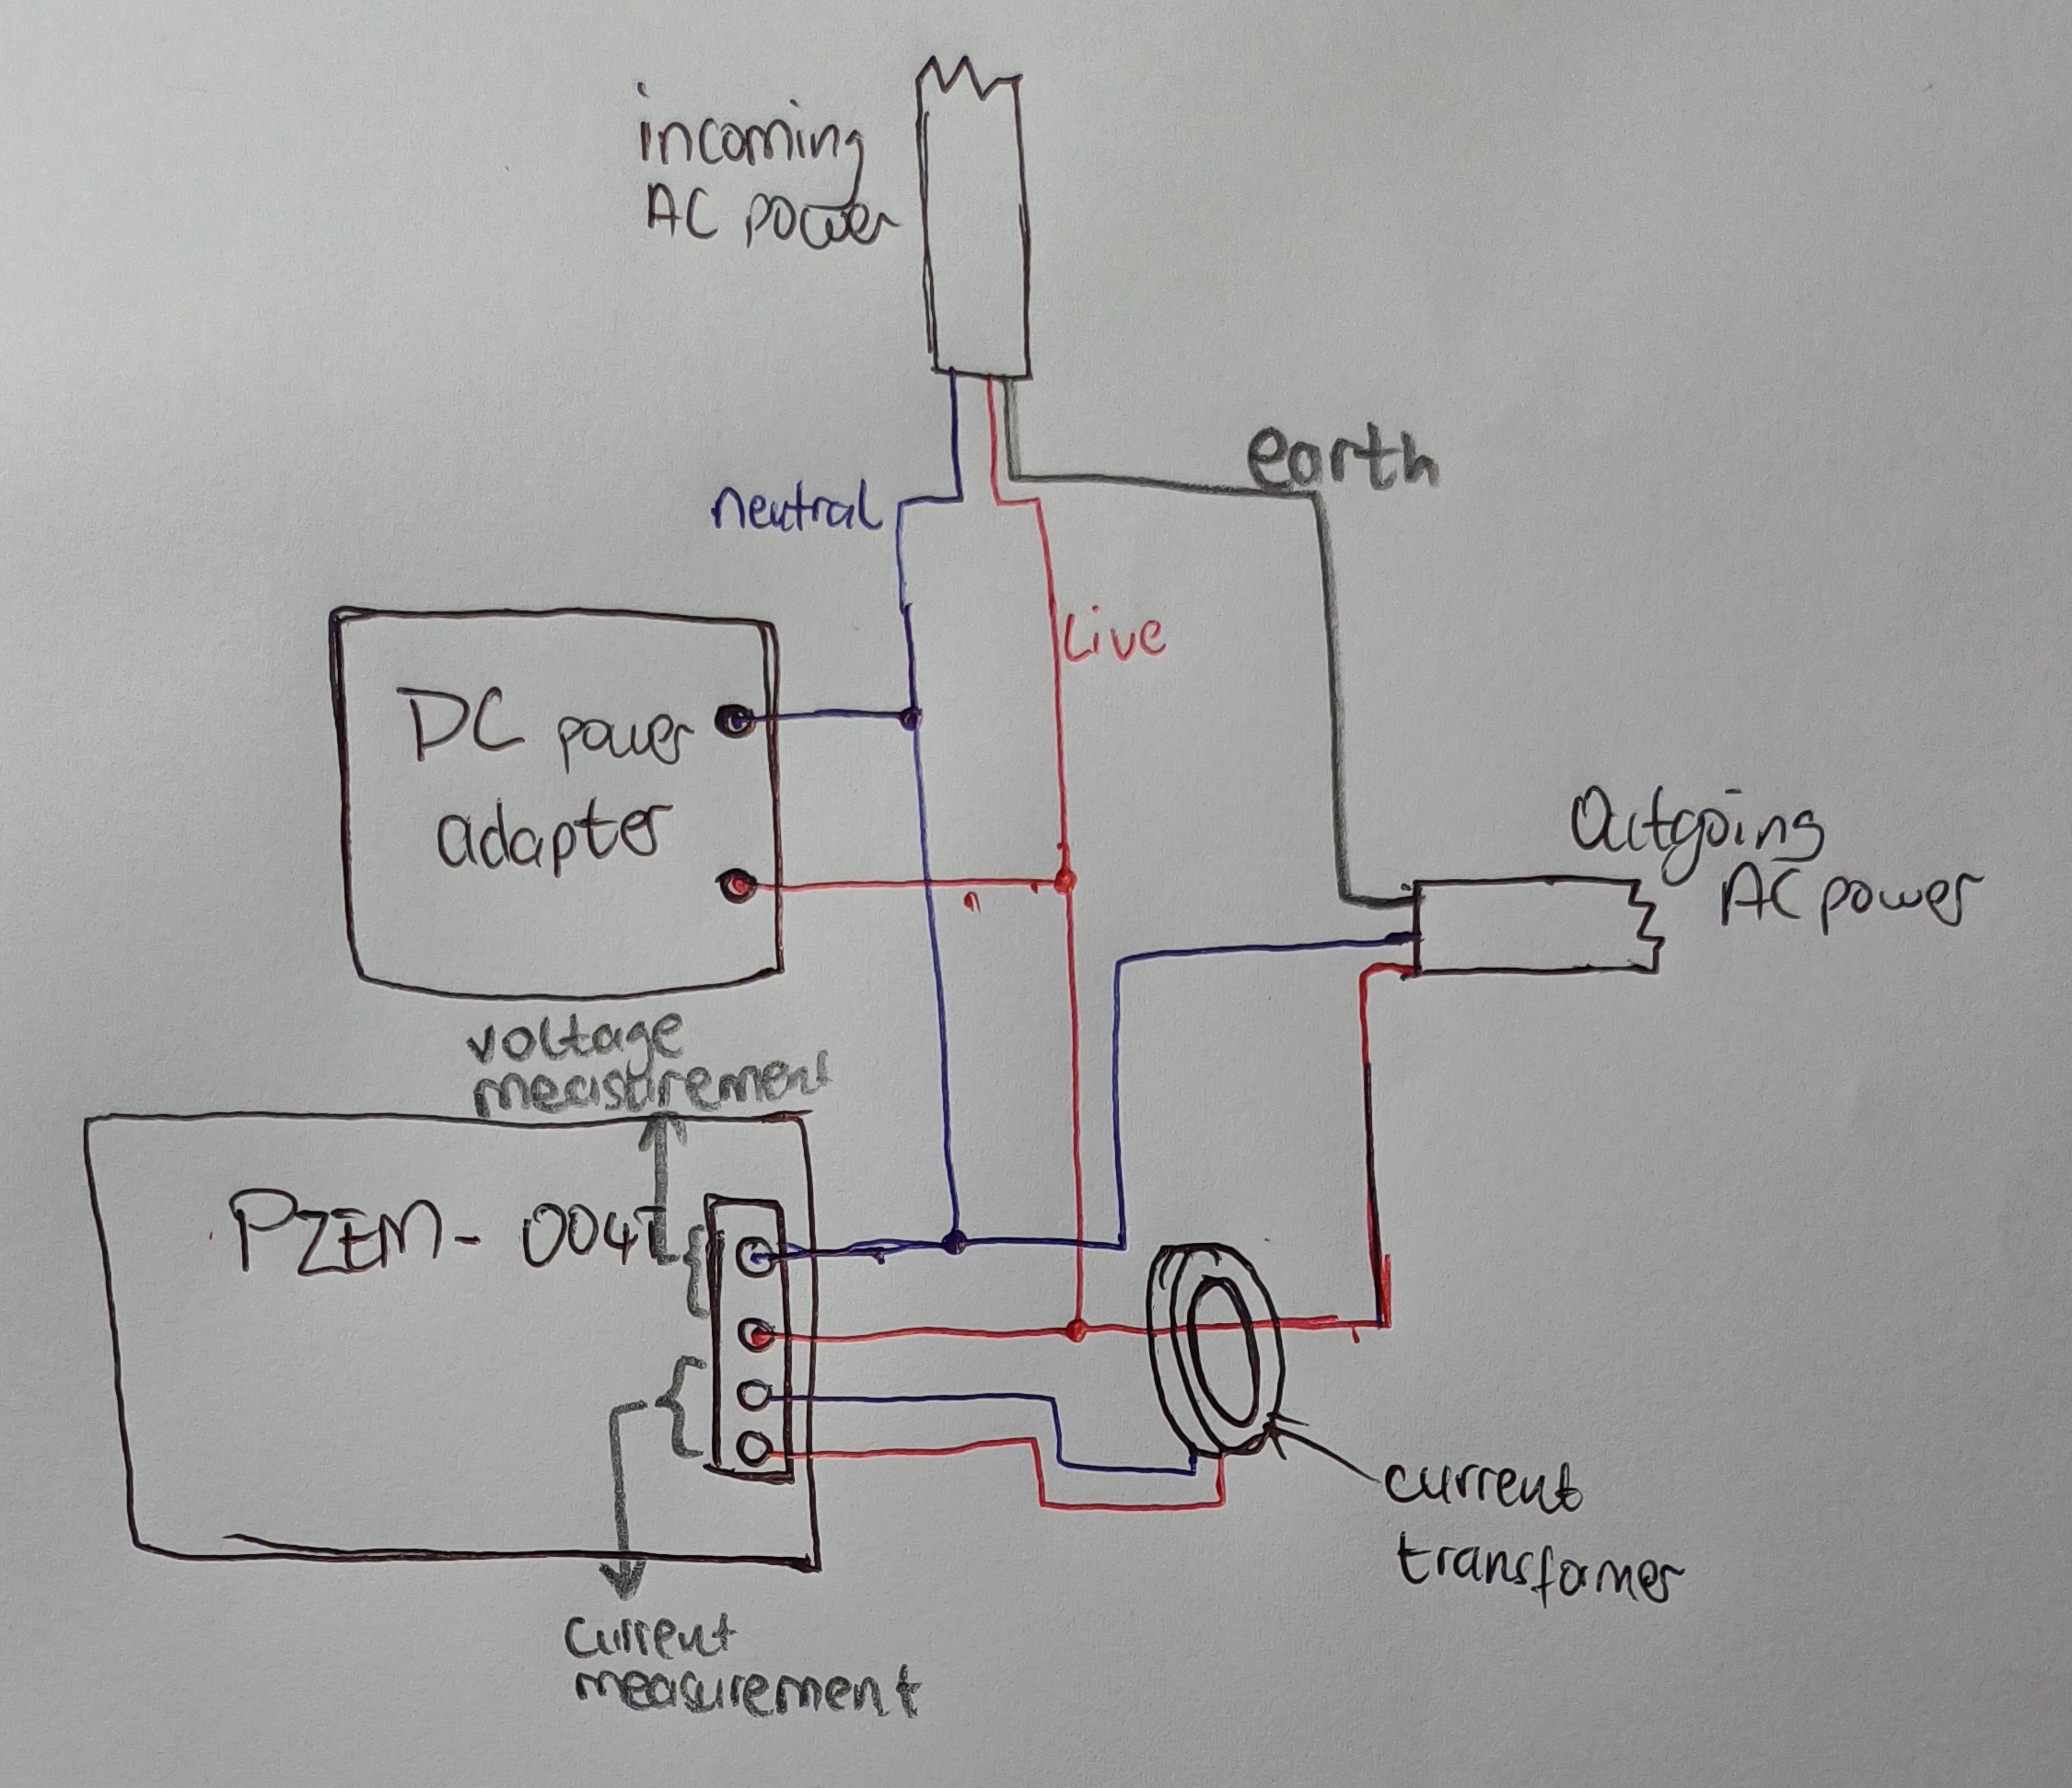 incoming
AC power
neutral
earth
Live
DC power
adapter
Outgoing
AC power
voltage
measurement
PZEM-004T
current
transformer
current
measurement